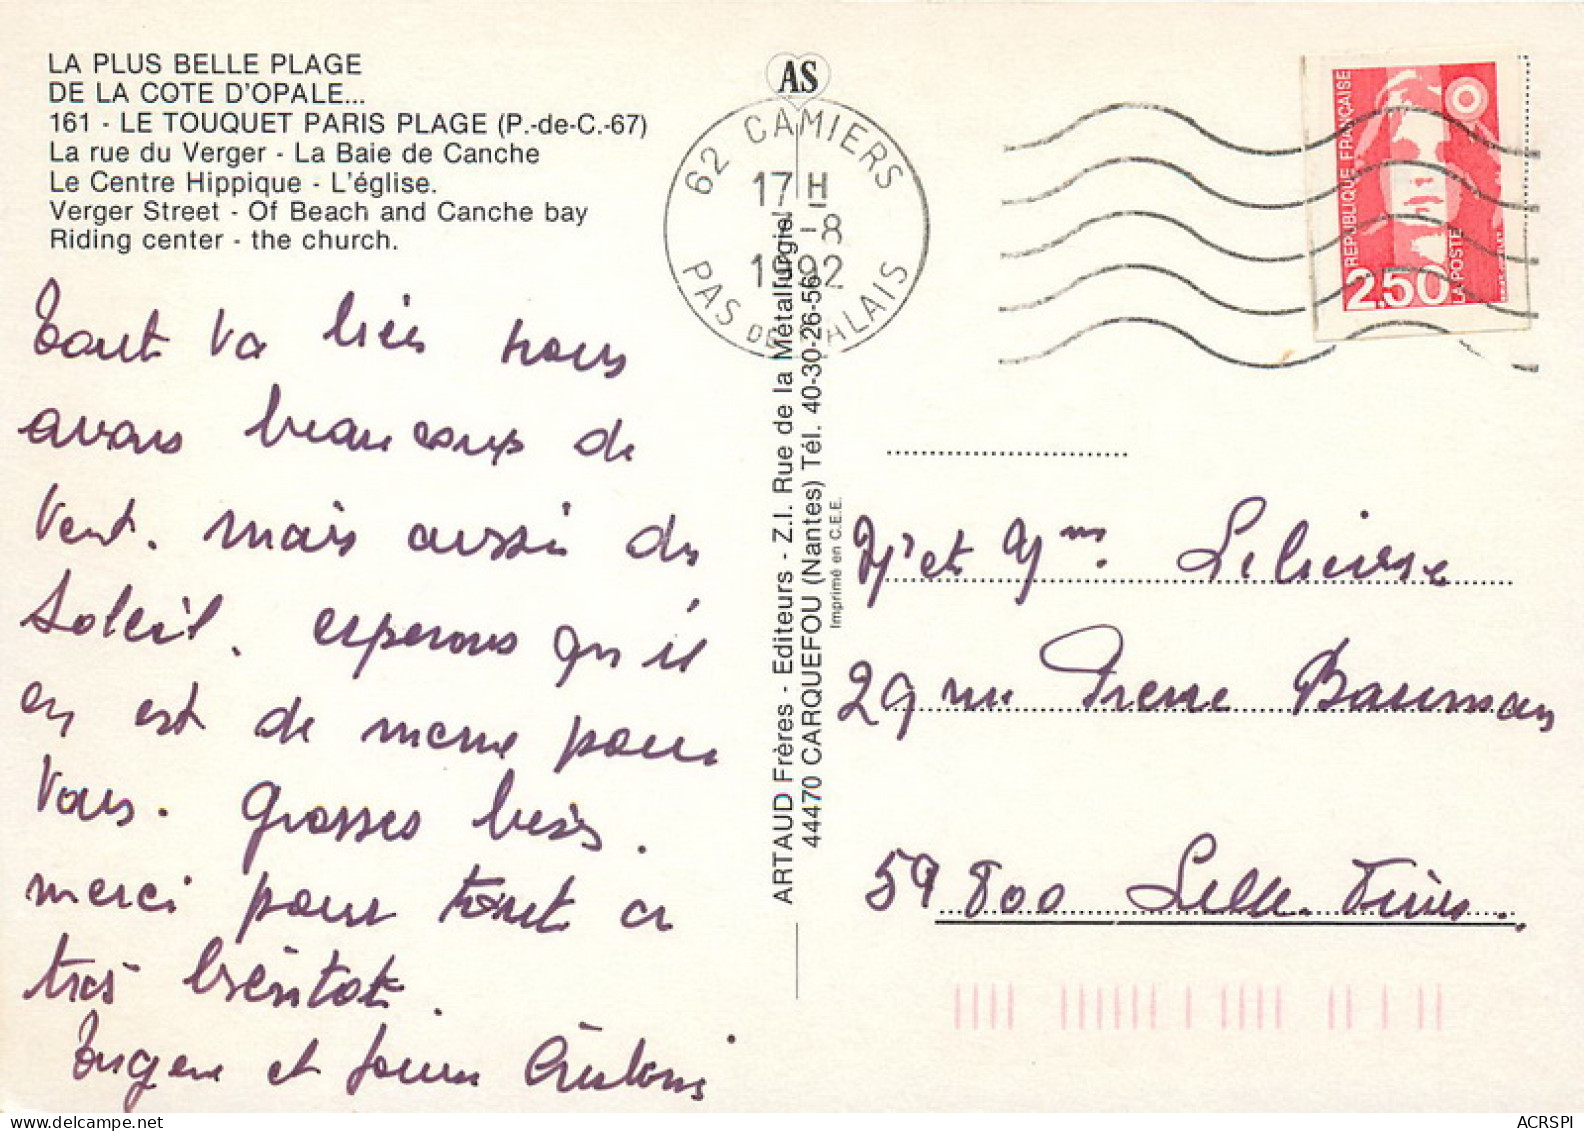 LA PLUS BELLE PLAGE
DE LA COTE D'OPALE...
161 - LE TOUQUET PARIS PLAGE (P.-de-C.-67)
La rue du Verger - La Baie de Canche
Le Centre Hippique - L'église.
Verger Street - Of Beach and Canche bay
Riding center - the church.
Tout va bien nous
avons beaucoup de
vent. mais aussi du
soleil. esperons qu'il
en est de meme pour
vous. grosses bises.
merci pour tout a
très bientot.
et
AS
62 CAMIERS
17 H
-8
1992
PAS DE CALAIS
ARTAUD Frères - Editeurs - Z.I. Rue de la Métallurgie
44470 CARQUEFOU (Nantes) Tél. 40-30-26-56
Imprimé en C.E.E.
REPUBLIQUE FRANÇAISE
2,50
LA POSTE
Mr et Mme
29 rue Pierre
59800 Lille
ACRSPI